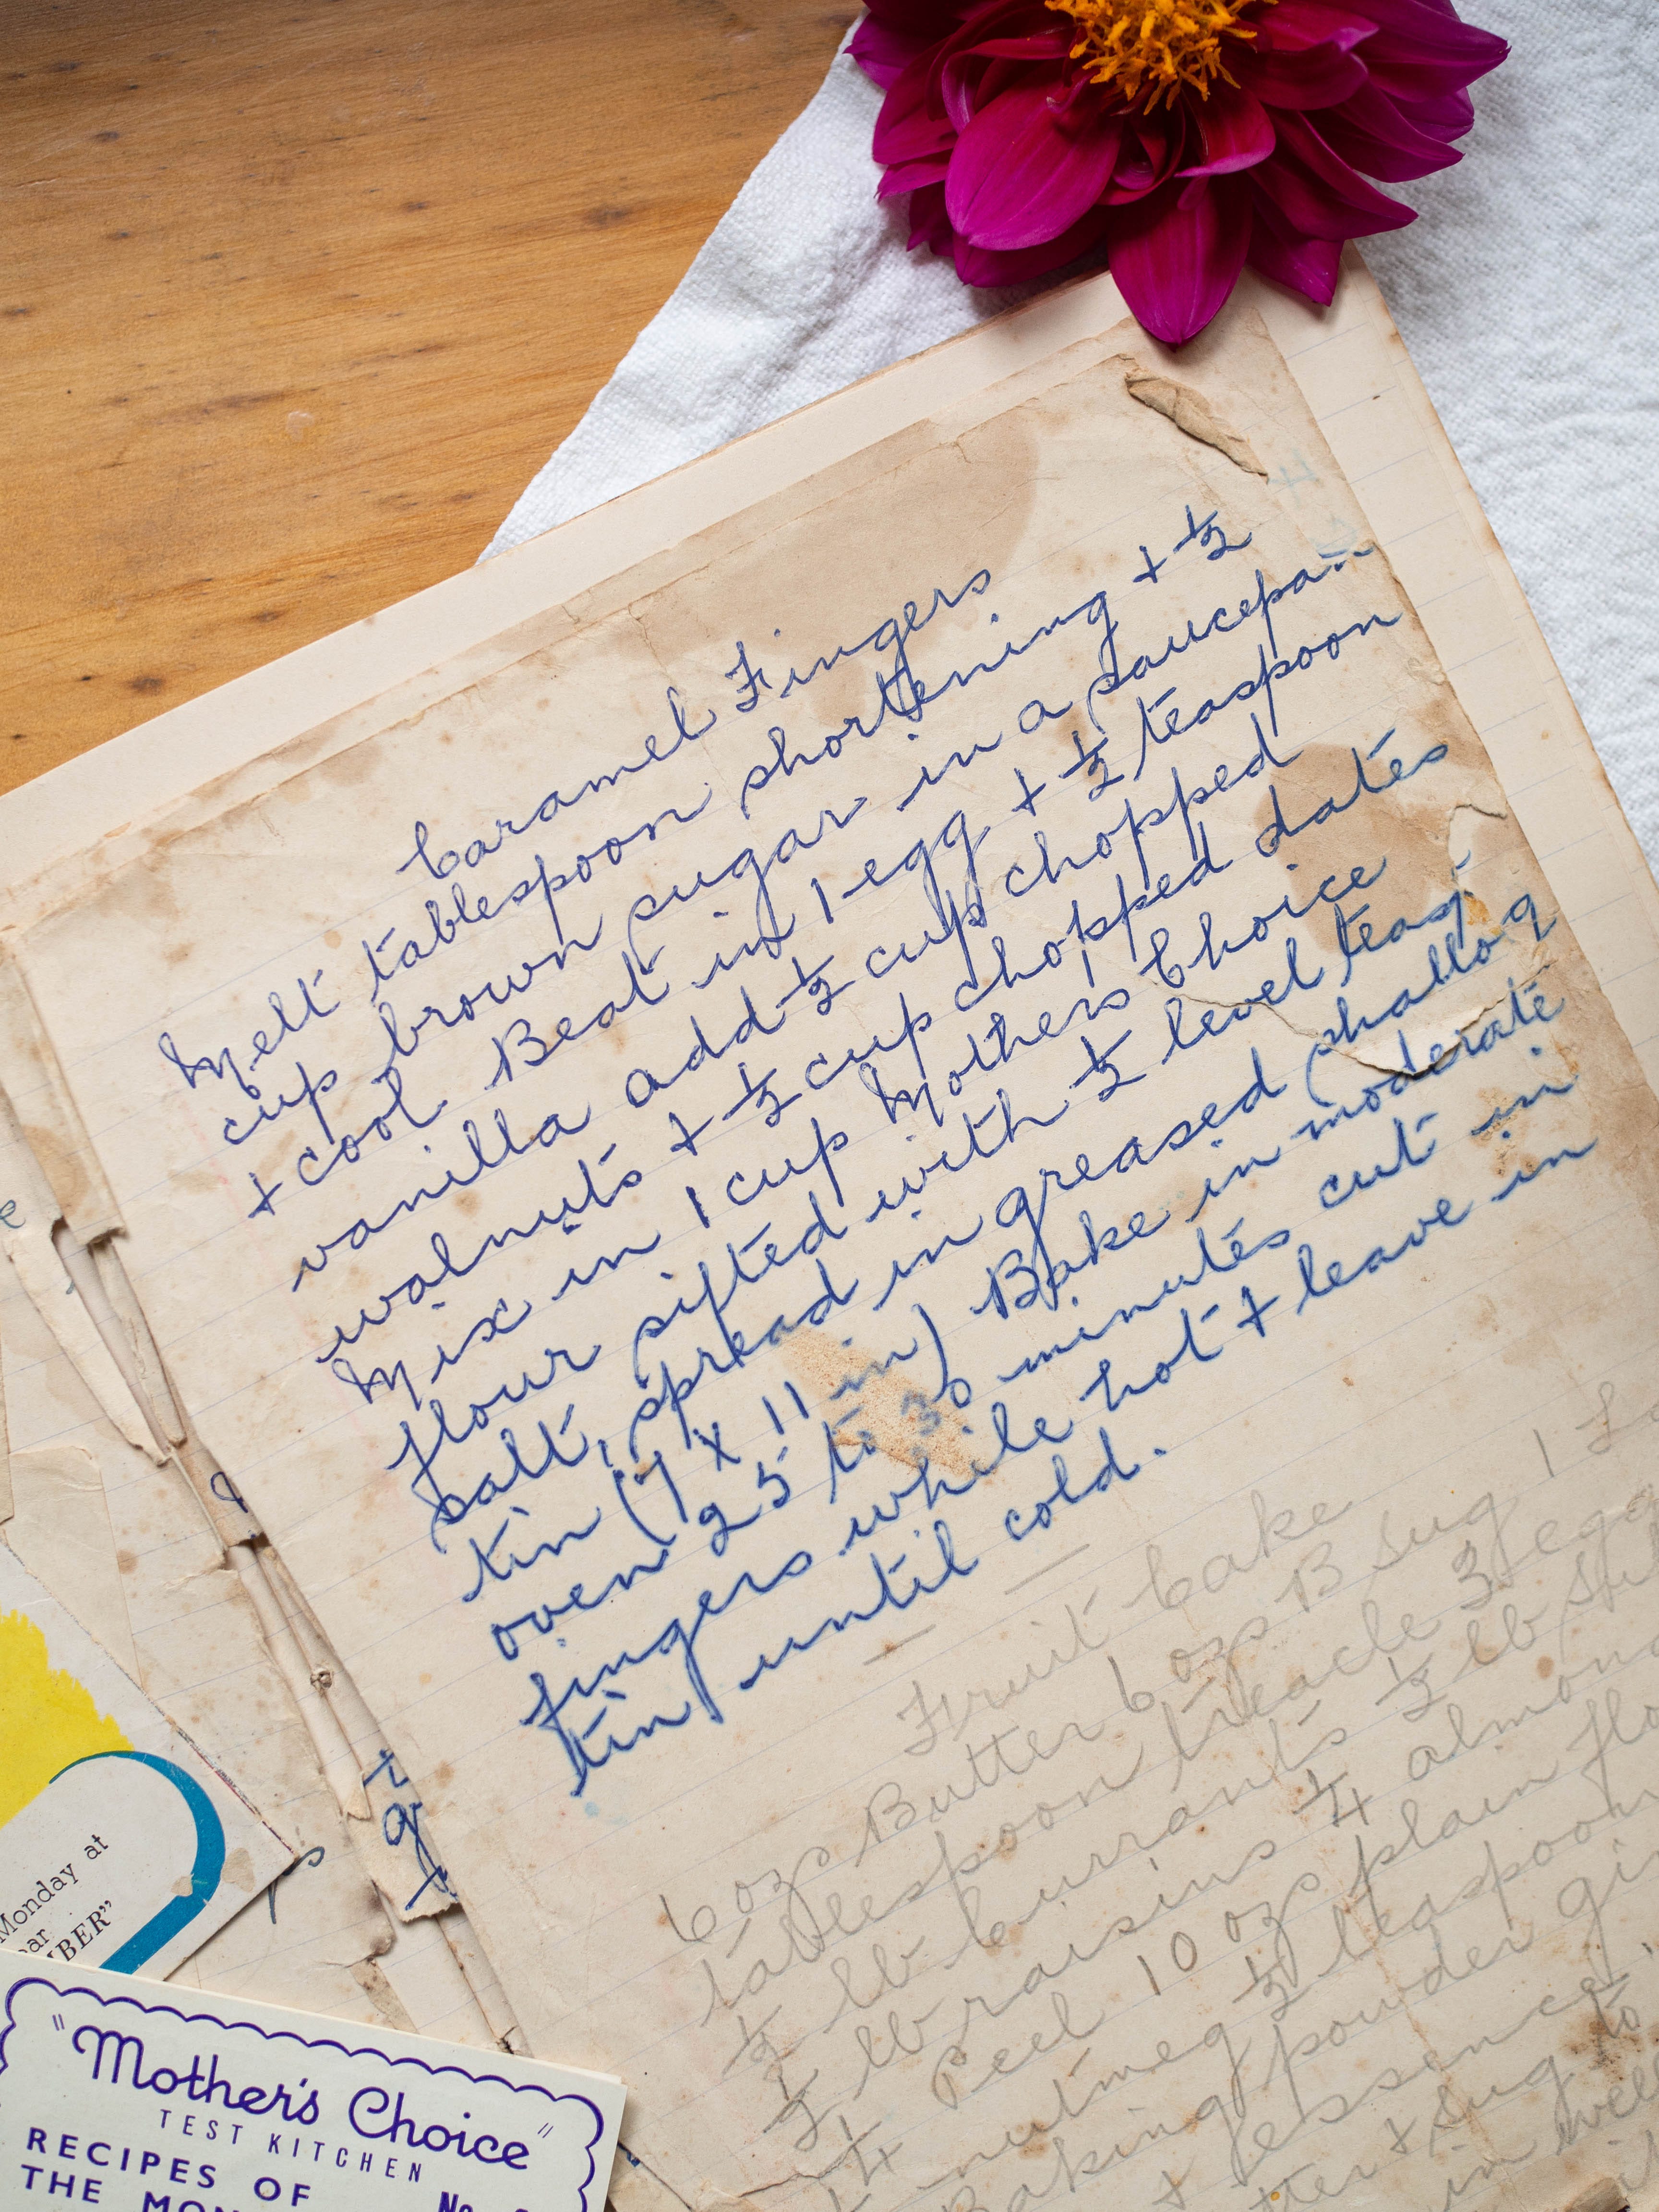 Caramel Fingers
Melt tablespoon shortening + ½
cup brown sugar in a saucepan
+ cool. Beat in 1 egg + ½ teaspoon
vanilla add ½ cup chopped
walnuts + ½ cup chopped dates
Mix in 1 cup Mothers Choice
flour sifted with ½ level teasp
salt, spread in greased (shallo
tin (7 x 11 in) Bake in moderate
oven 25 to 30 minutes cut in
fingers while hot + leave in
tin until cold.
Fruit Cake
6 ozs Butter 6 ozs B Sug 1
tablespoon treacle 3 egg
½ lb Currants ½ lb
½ lb raisins ¼ almon
¼ Peel 10 ozs plain flo
nutmeg ½ teaspoon
Baking powder gi
+ essence
tter + sug to
in well
Monday at
ar
BER"
"Mother's Choice"
TEST KITCHEN
RECIPES OF
THE MON
No.